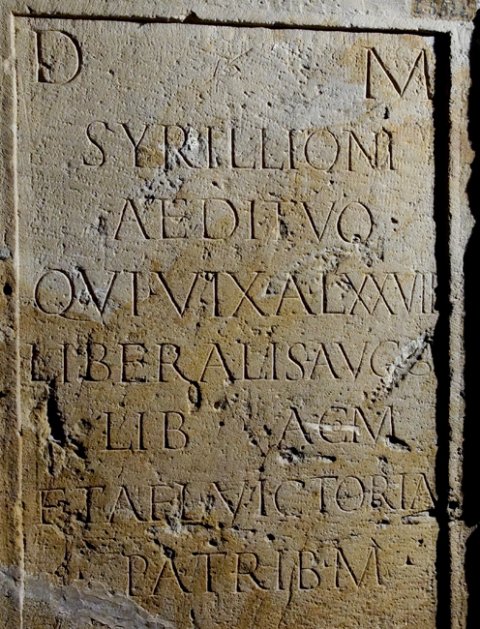 D M
SYRILLIONI
AEDITVO
QVI VIX A LXXVII
LIBERALIS AVG
LIB ACM
ET AEL VICTORIA
PATRI B M